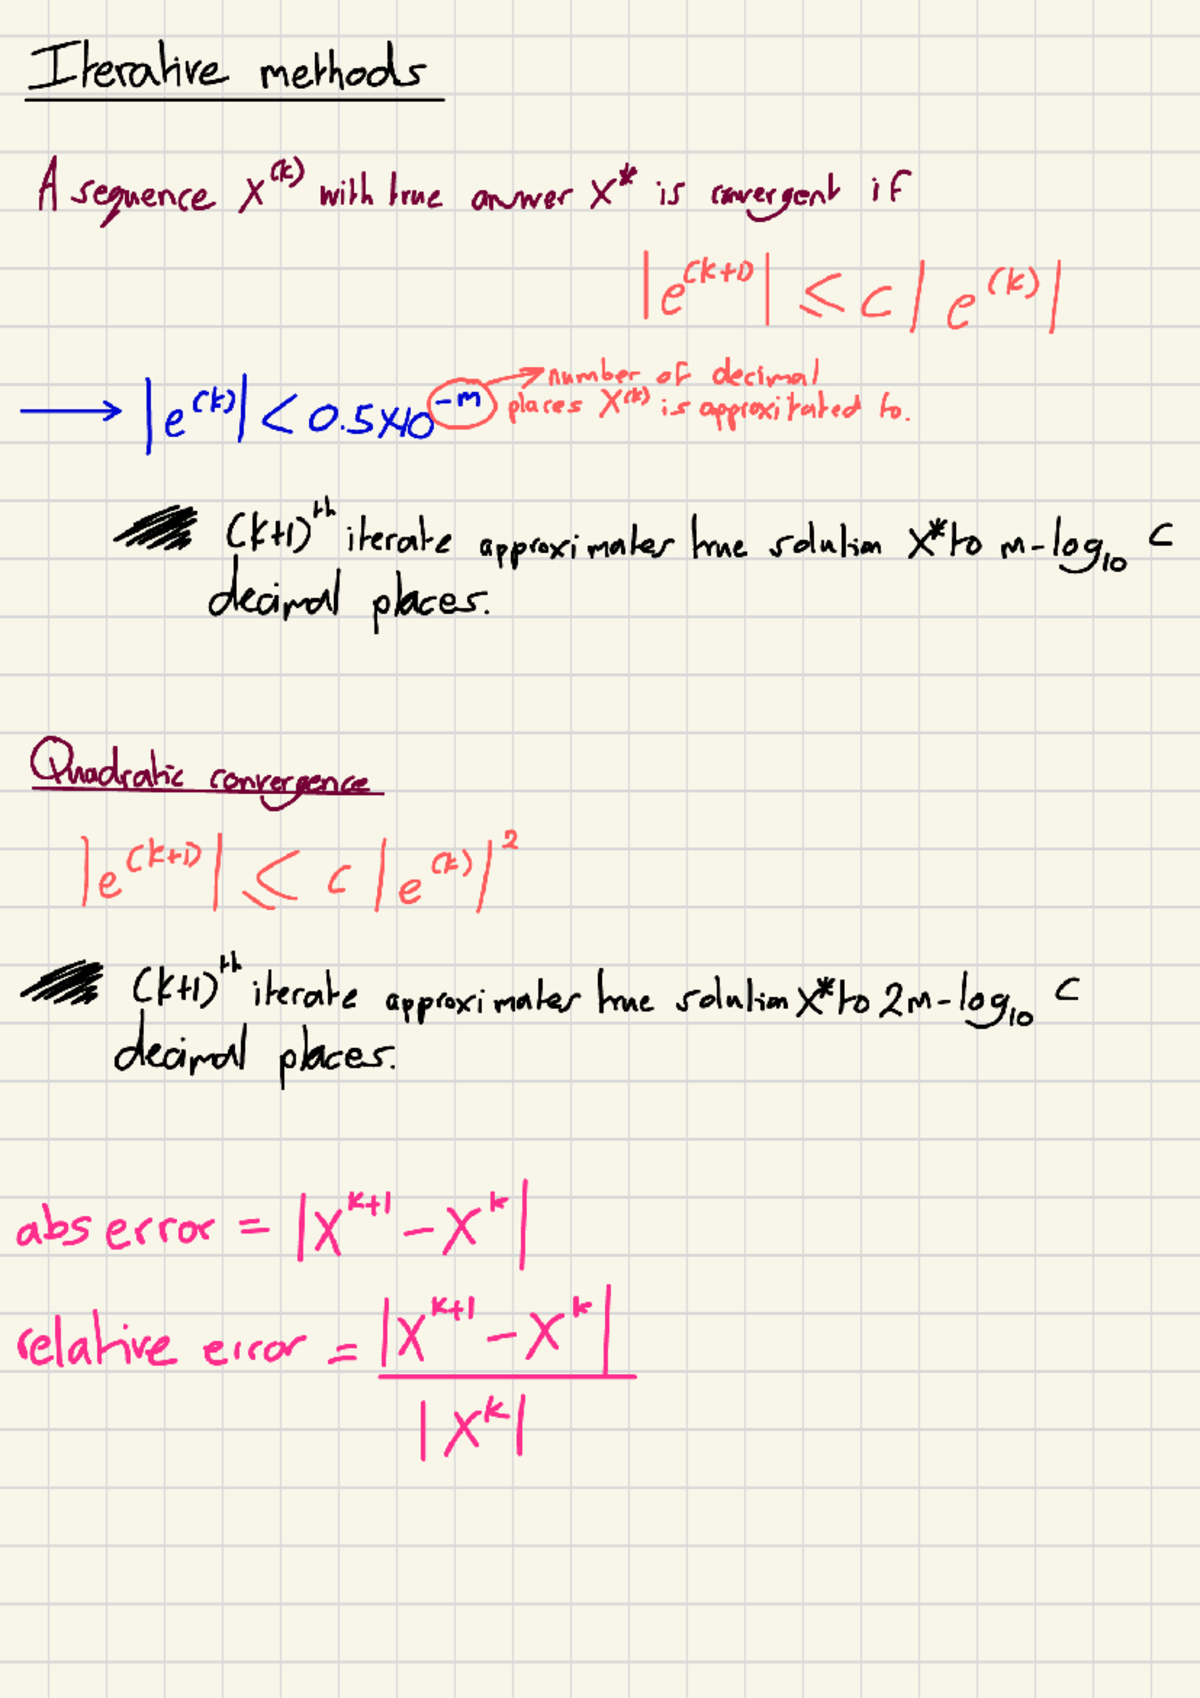 Iterative methods
A sequence X^(k) with true answer X* is convergent if
|e^(k+1)| ≤ c|e^(k)|
→ |e^(k)| < 0.5×10^-m → number of decimal
places X^(k) is approxitated to.
(k+1)^th iterate approximates true solution X* to m-log₁₀ C
decimal places.
Quadratic convergence
|e^(k+1)| ≤ c|e^(k)|²
(k+1)^th iterate approximates true solution X* to 2m-log₁₀ C
decimal places.
abs error = |X^k+1 - X^k|
relative error = |X^k+1 - X^k|
|X^k|